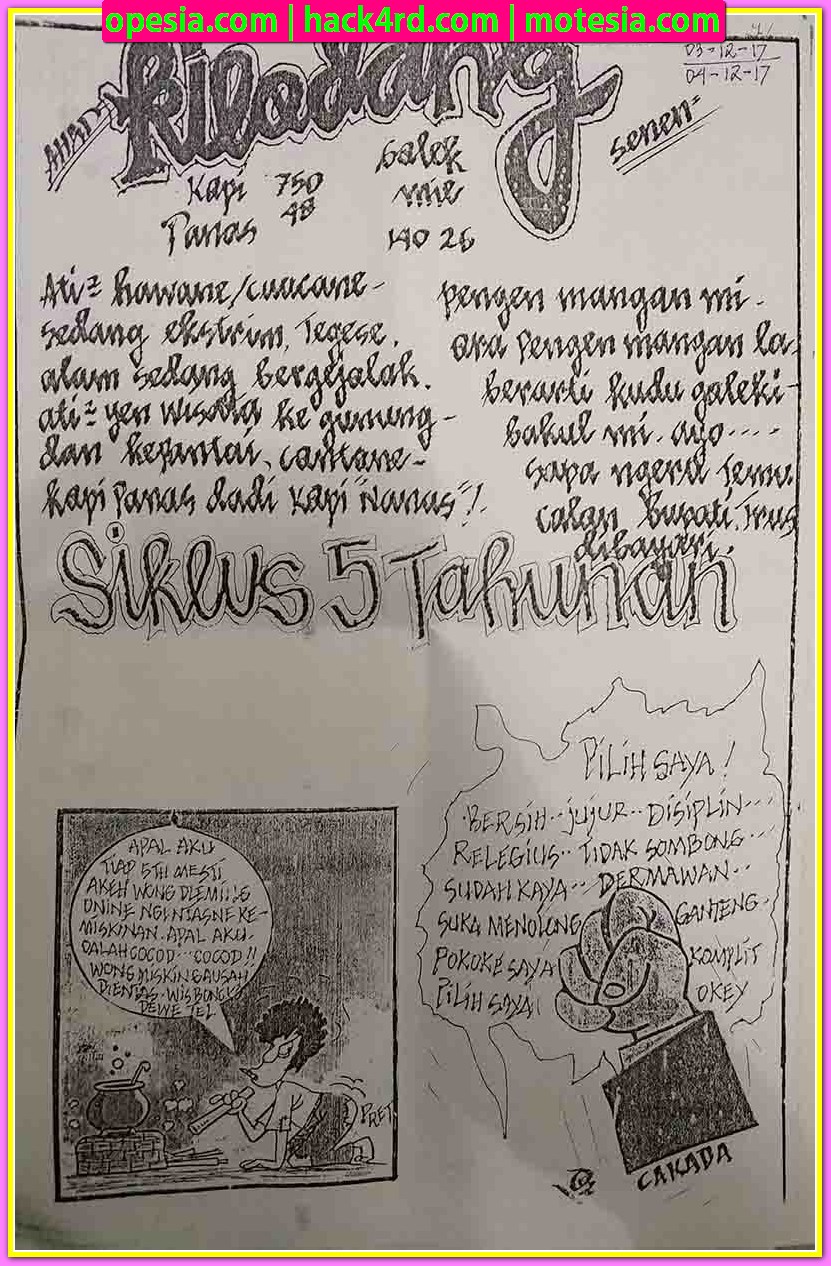 opesia.com | hack4rd.com | motesia.com
03-12-17
04-12-17
AHAD=
kiladang
senen=
Kapi 750
Panas 48
Galek
mie
140 26
Ati² hawane/cuacane-
sedang ekstrim, Tegese,
alam sedang bergejalak.
ati² yen wisata ke gunung-
dan kepantai, cantane-
kapi Panas dadi kapi "Nanas"!
pengen mangan mi-
ara pengen mangan la-
berarti kudu galeki-
bakul mi. ayo....
sapa ngerti Temu
calan Bupati, Trus
dibayari.
Siklus 5 Tahunan
APAL AKU
TIAP 5TH MESTI
AKEH WONG
UNINE NGENTASNE KE-
MISKINAN. APAL AKU.
OALAH COCOD... COCOD!!
WONG MISKIN GAUSAH
DIENTAS. WIS BONGKO
DEWE TEL
PRET
PILIH SAYA!
BERSIH.. JUJUR.. DISIPLIN...
RELEGIUS.. TIDAK SOMBONG...
SUDAH KAYA.. DERMAWAN..
SUKA MENOLONG GANTENG.
POKOKE SAYA KOMPLIT
PILIH SAYA! OKEY
CAKADA